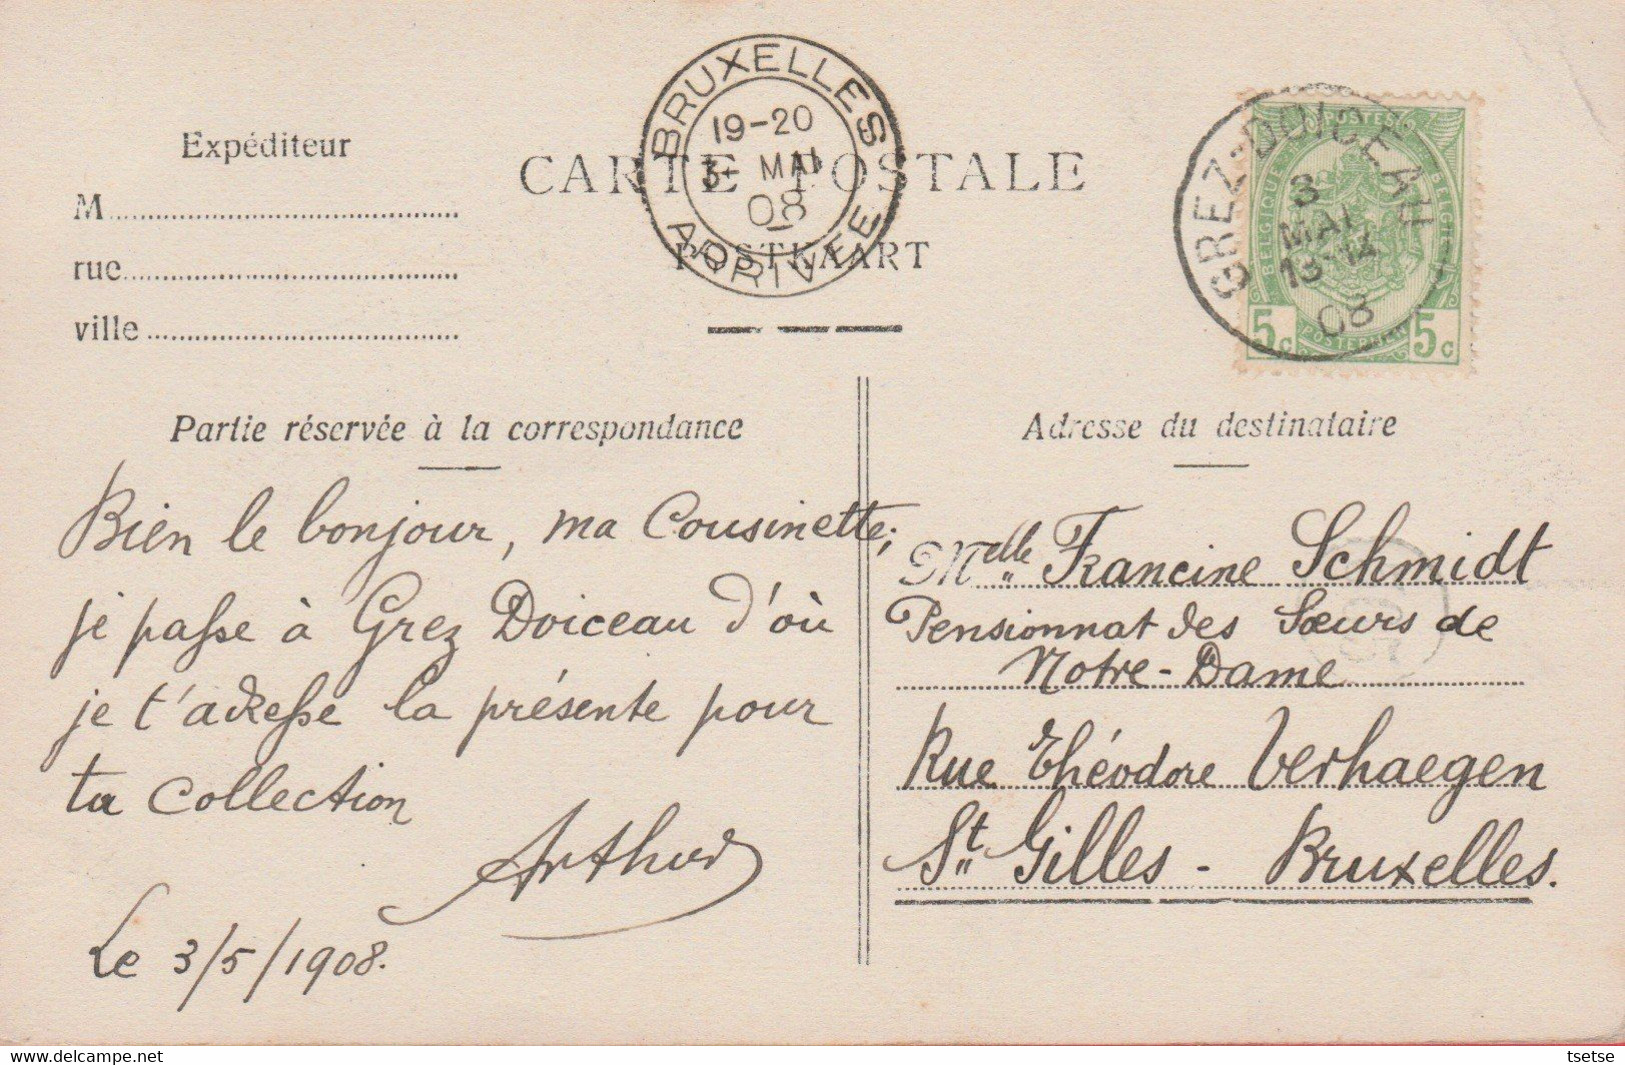 BRUXELLES
19-20
3- MAI
08
ARRIVÉE
GREZ-DOICEAU
3
MAI
13-14
08
POSTES
BELGIQUE
BELGIË
5c
POSTERIJEN
5c
Expéditeur
M
rue
ville
CARTE POSTALE
POSTKAART
Partie réservée à la correspondance
Bien le bonjour, ma Cousinette;
je passe à Grez Doiceau d'où
je t'adresse la présente pour
ta collection
Arthur
Le 3/5/1908.
Adresse du destinataire
Melle Francine Schmidt
Pensionnat des Sœurs de
Notre-Dame
Rue Théodore Verhaegen
St. Gilles - Bruxelles.
delcampe.net
tsetse